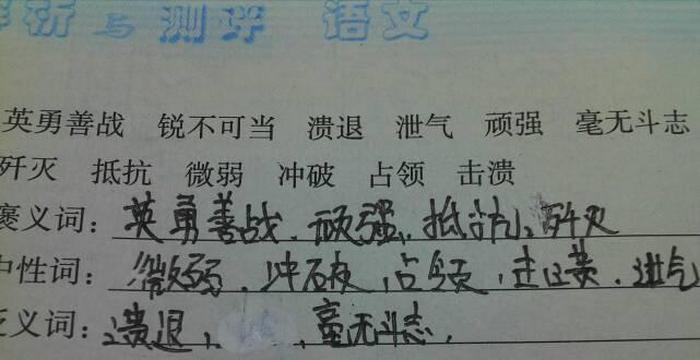 析与测评 语文
英勇善战 锐不可当 溃退 泄气 顽强 毫无斗志
歼灭 抵抗 微弱 冲破 占领 击溃
褒义词：英勇善战、顽强、抵抗、歼灭
中性词：微弱、冲破、占领、泄气
贬义词：溃退，毫无斗志，